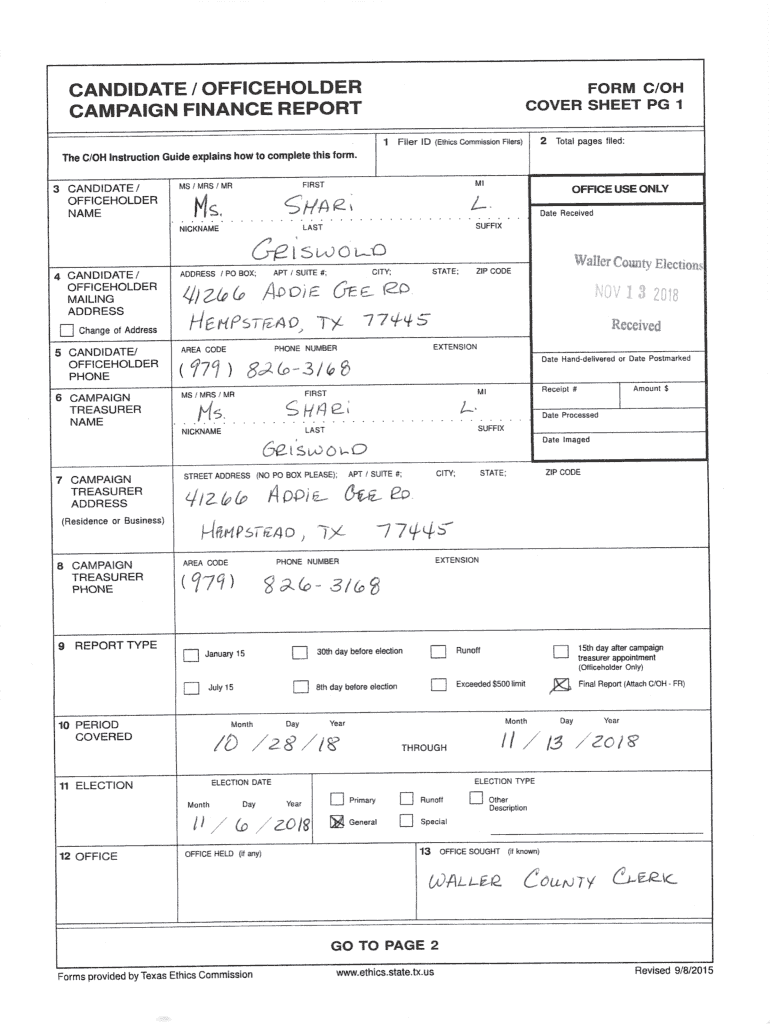 CANDIDATE / OFFICEHOLDER
CAMPAIGN FINANCE REPORT
FORM C/OH
COVER SHEET PG 1
The C/OH Instruction Guide explains how to complete this form.
1 Filer ID (Ethics Commission Filers)
2 Total pages filed:
3 CANDIDATE / OFFICEHOLDER NAME
MS / MRS / MR FIRST MI
Ms. SHARI L.
NICKNAME LAST SUFFIX
GRISWOLD
OFFICE USE ONLY
Date Received
Waller County Elections
NOV 13 2018
Received
4 CANDIDATE / OFFICEHOLDER MAILING ADDRESS
Change of Address
ADDRESS / PO BOX; APT / SUITE #; CITY; STATE; ZIP CODE
41266 ADDIE GEE RD
HEMPSTEAD, TX 77445
5 CANDIDATE/ OFFICEHOLDER PHONE
AREA CODE PHONE NUMBER EXTENSION
(979) 826-3168
Date Hand-delivered or Date Postmarked
Receipt # Amount $
Date Processed
Date Imaged
6 CAMPAIGN TREASURER NAME
MS / MRS / MR FIRST MI
Ms. SHARI L.
NICKNAME LAST SUFFIX
GRISWOLD
7 CAMPAIGN TREASURER ADDRESS
(Residence or Business)
STREET ADDRESS (NO PO BOX PLEASE); APT / SUITE #; CITY; STATE; ZIP CODE
41266 ADDIE GEE RD.
HEMPSTEAD, TX 77445
8 CAMPAIGN TREASURER PHONE
AREA CODE PHONE NUMBER EXTENSION
(979) 826-3168
9 REPORT TYPE
January 15
30th day before election
Runoff
15th day after campaign treasurer appointment (Officeholder Only)
July 15
8th day before election
Exceeded $500 limit
Final Report (Attach C/OH - FR)
10 PERIOD COVERED
Month Day Year
10 / 28 / 18
THROUGH
Month Day Year
11 / 13 / 2018
11 ELECTION
ELECTION DATE
Month Day Year
11 / 6 / 2018
ELECTION TYPE
Primary
Runoff
Other Description
General
Special
12 OFFICE
OFFICE HELD (if any)
13 OFFICE SOUGHT (if known)
WALLER COUNTY CLERK
GO TO PAGE 2
Forms provided by Texas Ethics Commission
www.ethics.state.tx.us
Revised 9/8/2015